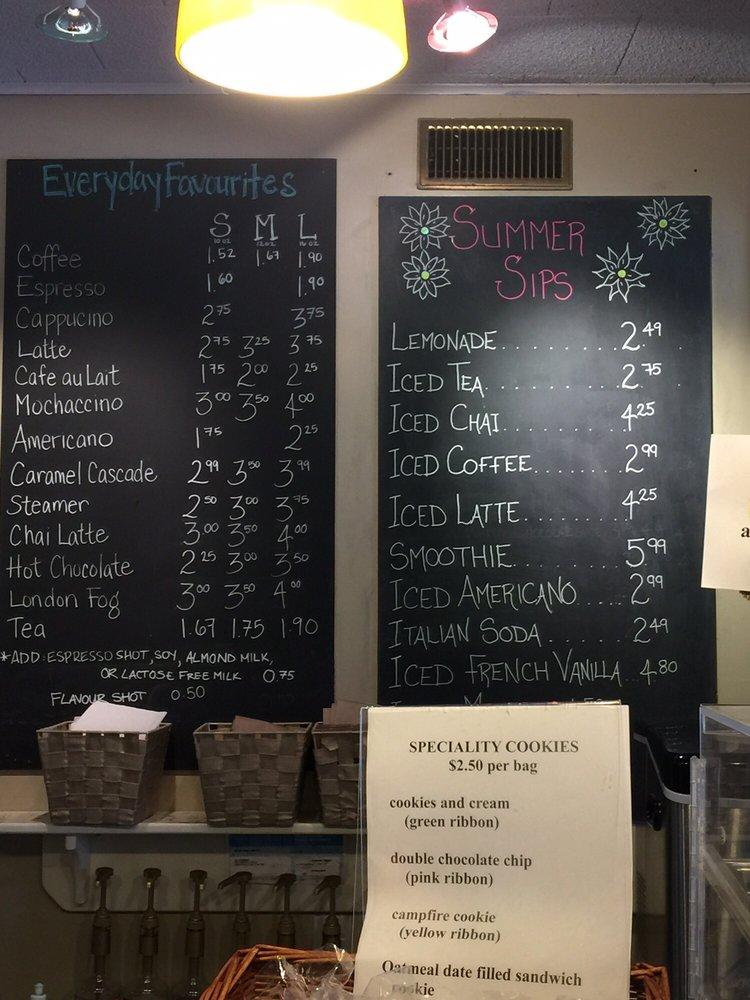 Everyday Favourites
S M L
10 oz 12 oz 16 oz
Coffee 1.52 1.67 1.90
Espresso 1.60 1.90
Cappucino 2 75 3 75
Latte 2 75 3 25 3 75
Cafe au Lait 1 75 2 00 2 25
Mochaccino 3 00 3 50 4 00
Americano 1 75 2 25
Caramel Cascade 2 99 3 50 3 99
Steamer 2 50 3 00 3 75
Chai Latte 3.00 3 50 4 00
Hot Chocolate 2 25 3 00 3 50
London Fog 3 00 3 50 4 00
Tea 1.67 1.75 1.90
*ADD: ESPRESSO SHOT, SOY, ALMOND MILK,
OR LACTOSE FREE MILK 0.75
FLAVOUR SHOT 0.50
SUMMER
SIPS
LEMONADE........2.49
ICED TEA.........2.75
ICED CHAI........4 25
ICED COFFEE.......2 99
ICED LATTE........4 25
SMOOTHIE........5.99
ICED AMERICANO.....2 99
ITALIAN SODA.......2 49
ICED FRENCH VANILLA..4.80
a
SPECIALITY COOKIES
$2.50 per bag
cookies and cream
(green ribbon)
double chocolate chip
(pink ribbon)
campfire cookie
(yellow ribbon)
Oatmeal date filled sandwich
cookie